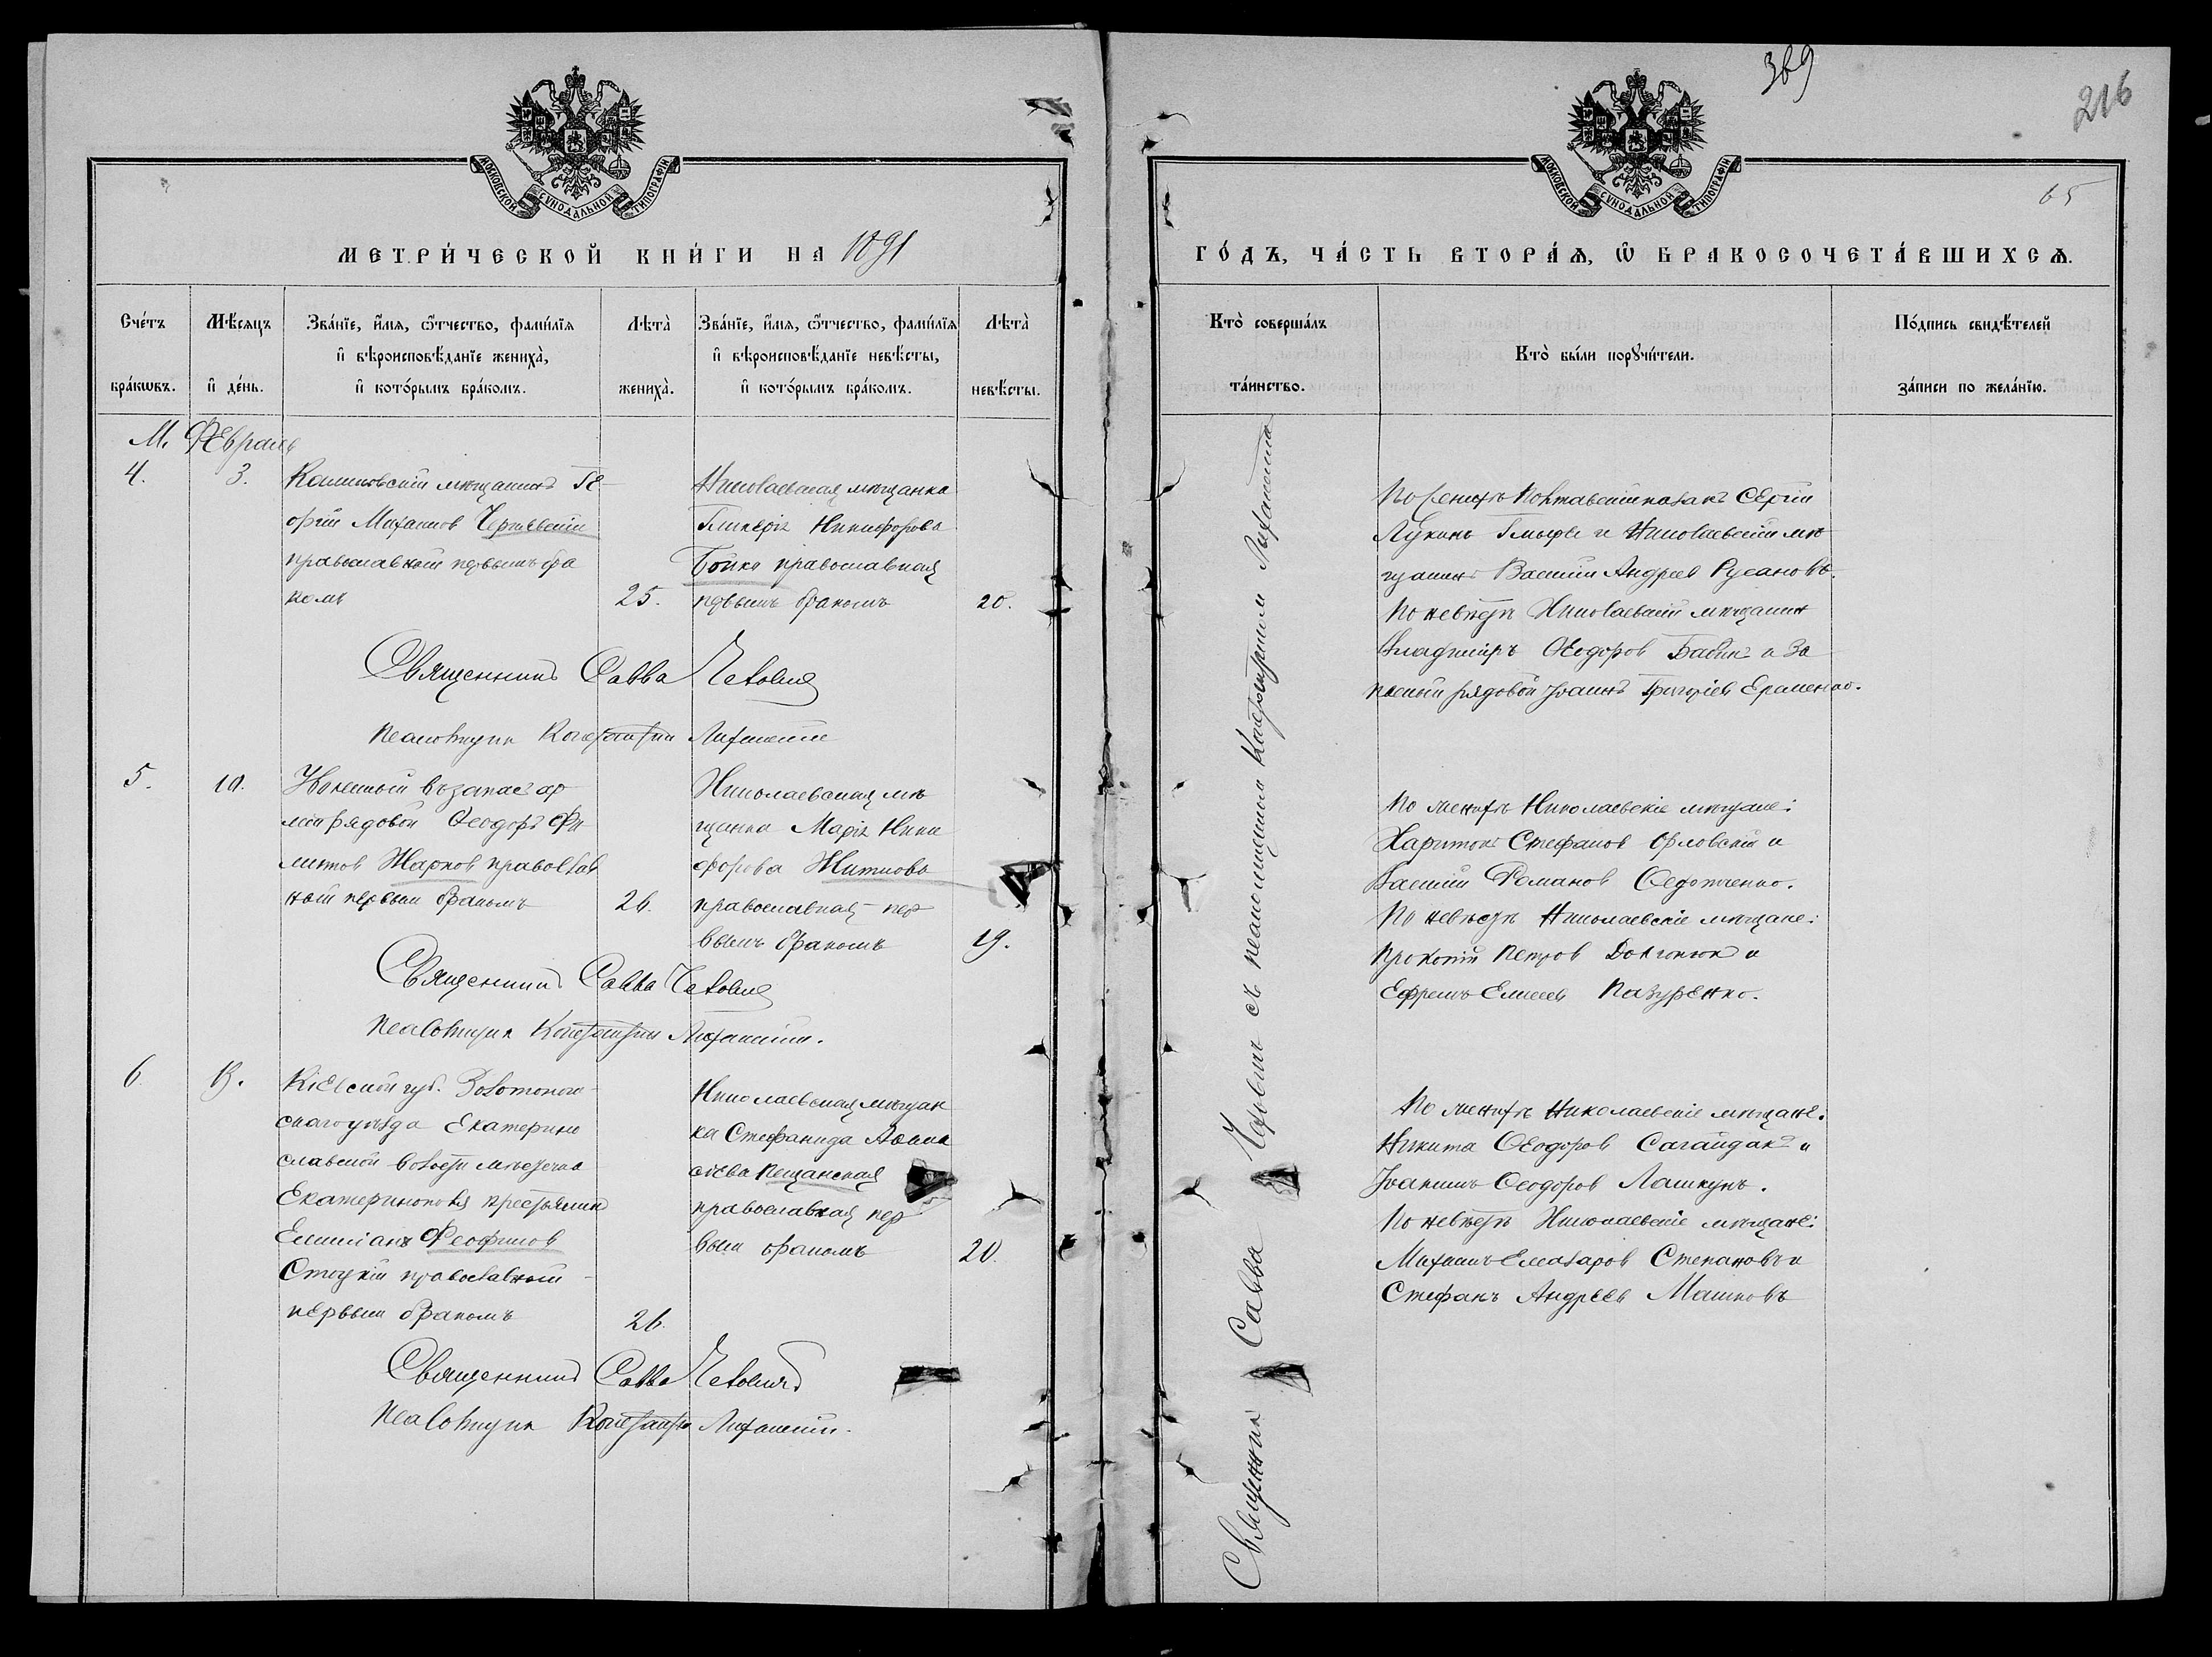 369
216
65
МОСКОВСКОЙ СѴНОДАЛЬНОЙ ТИПОГРАФІИ
МОСКОВСКОЙ СѴНОДАЛЬНОЙ ТИПОГРАФІИ
МЕТРИ́ЧЕСКОЙ КНИ́ГИ НА 1891
ГО́ДЪ, ЧА́СТЬ ВТОРА́Ѧ, Ѽ БРАКОСОЧЕТА́ВШИХСѦ.
Сче́тъ бра́кѡвъ.
Мѣ́сяцъ и҆ де́нь.
Зва́нїе, и҆́мѧ, ѻ҆́тчество, фами́лїѧ
и҆ вѣроисповѣ́данїе жениха̀,
и҆ кото́рымъ бра́комъ.
Лѣта̀ жениха̀.
Зва́нїе, и҆́мѧ, ѻ҆́тчество, фами́лїѧ
и҆ вѣроисповѣ́данїе невѣ́сты,
и҆ кото́рымъ бра́комъ.
Лѣта̀ невѣ́сты.
Кто̀ соверша́лъ та́инство.
Кто̀ бы́ли порꙋчи́тели.
По́дпись свидѣ́телей
за́писи по жела́нїю.
М. Февраль
4.
3.
мѣщанинъ Ге
оргій Михаилов
православный первымъ бра
комъ
25.
Николаевская мѣщанка
Гликерія Никифорова
Бойко православная
первымъ бракомъ
20.
По женихѣ Полтавскій козакъ Сергій
Лукинъ и Николаевскій мѣ
щанинъ Василій Андреев Русановъ.
По невѣстѣ Николаевскій мѣщанин
Владиміръ Ѳеодоров Бабик и За
пасный рядовой Іоаннъ Григоріев Ерменко.
Священникъ Савва
Псаломщикъ Константин
5.
10.
Уволенный въ запас ар
міи рядовой Ѳеодоръ Фи
липпов Жарков православ
ный первым бракомъ
26.
Николаевская мѣ
щанка Марія Ники
форова Житкова
православная пер
вымъ бракомъ
19.
По женихѣ Николаевскіе мѣщане:
Харитонъ Стефанов Орловскій и
Василій Романов Ѳедотченко.
По невѣстѣ Николаевскіе мѣщане:
Прокопій Петров и
Ефремъ Елисеев Пазуренко.
Священникъ Савва
Псаломщикъ Константин
6.
13.
Кіевской губ. Золотонош
скаго уѣзда Екатерино
славской волости мѣстечка
Екатеринополя крестьянин
Емиліанъ Феофилов
православный
первым бракомъ
26.
Николаевская мѣщан
ка Стефанида Аѳана
сіева Пещанская
православная пер
вым бракомъ
20.
По женихѣ Николаевскіе мѣщане:
Никита Ѳеодоров Сагайдакъ и
Іоакимъ Ѳеодоров Лашкунъ.
По невѣстѣ Николаевскіе мѣщане:
Михаилъ Елеазаров Степановъ и
Стефанъ Андреев Машковъ
Священникъ Савва
Псаломщикъ Константин
Священник Савва съ псаломщиком Константином